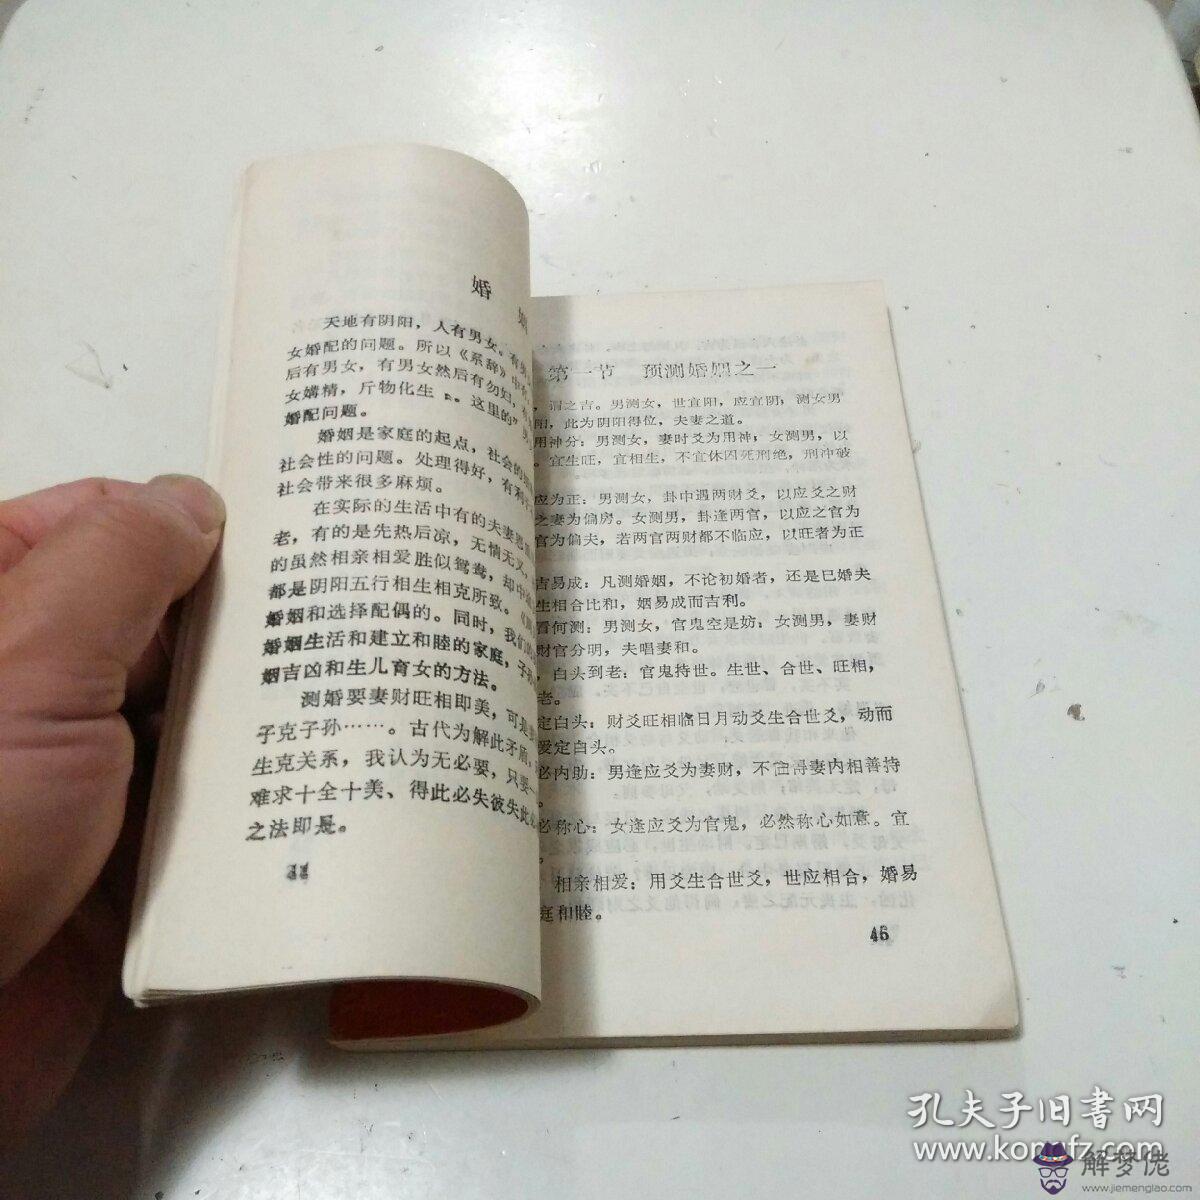 婚
天地有阴阳，人有男女。有
女婚配的问题。所以《系辞》中
后有男女，有男女然后有勿妇，
女媾精，斤物化生〃。这里的"
婚配问题。
婚姻是家庭的起点，社会的
社会性的问题。处理得好，有利
社会带来很多麻烦。
在实际的生活中有的夫妻恩
老，有的是先热后凉，无情无义，
的虽然相亲相爱胜似鸳鸯，却中
都是阴阳五行相生相克所致。
婚姻和选择配偶的。同时，我们
婚姻生活和建立和睦的家庭，子
姻吉凶和生儿育女的方法。
测婚要妻财旺相即美，可是
子克子孙……。古代为解此矛盾，
生克关系，我认为无必要，只要一
难求十全十美、得此必失彼失此
之法即是。
第一节 预测婚姻之一
，谓之吉。男测女，世宜阳，应宜阴；测女男
阳，此为阴阳得位，夫妻之道。
用神分：男测女，妻时爻为用神；女测男，以
。宜生旺，宜相生，不宜休囚死刑绝，刑冲破
应为正：男测女，卦中遇两财爻，以应爻之财
之妻为偏房。女测男，卦逢两官，以应之官为
官为偏夫，若两官两财都不临应，以旺者为正
吉易成：凡测婚姻，不论初婚者，还是已婚夫
生相合比和，姻易成而吉利。
看何测：男测女，官鬼空是妨；女测男，妻财
财官分明，夫唱妻和。
，白头到老：官鬼持世。生世、合世、旺相，
老。
定白头：财爻旺相临日月动爻生合世爻，动而
爱定白头。
必内助：男逢应爻为妻财，不 妻内相善持
必称心：女逢应爻为官鬼，必然称心如意。宜
相亲相爱：用爻生合世爻，世应相合，婚易
庭和睦。
45
孔夫子旧书网
www.kongfz.com
解梦佬
www.jiemenglao.com